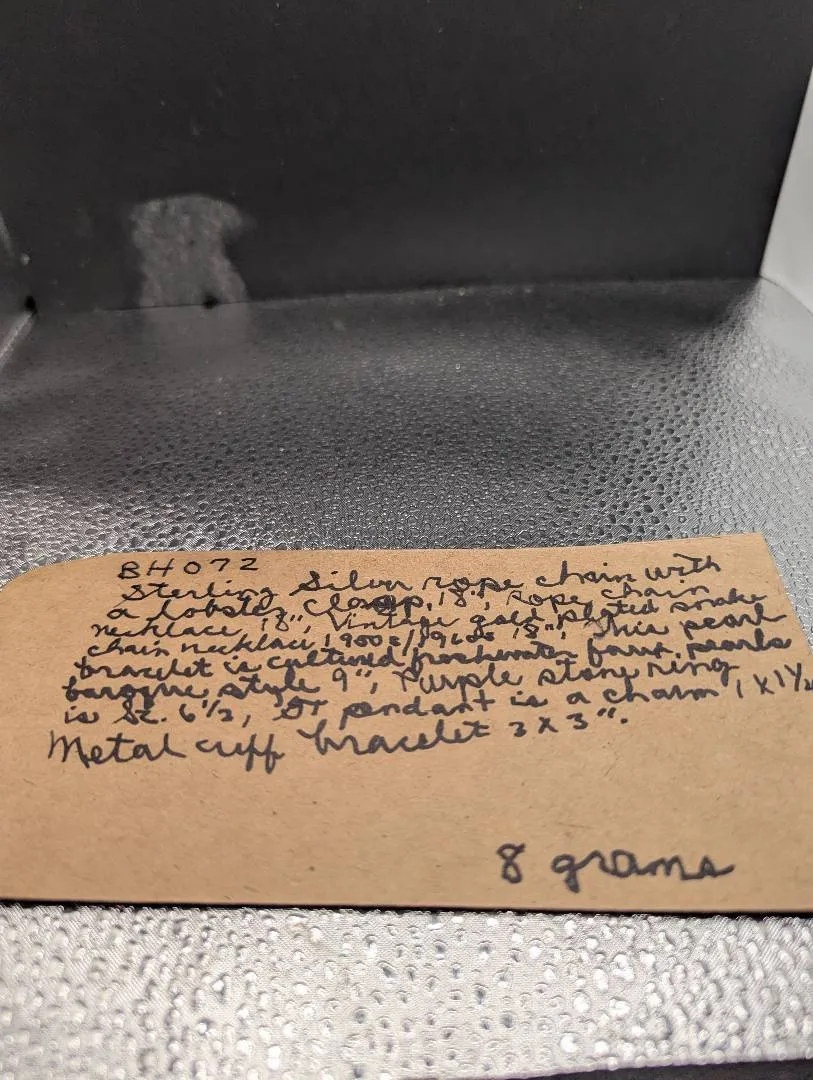 BH072
Sterling Silver rope chain with
a lobster clasp, 18", rope chain
necklace, 18", Vintage gold plated snake
chain necklace, 18", This pearl
bracelet is cultured freshwater faux pearls
baroque style 9", Purple stone ring
is SZ. 6 1/2, pendant is a charm 1 X 1 1/2
Metal cuff bracelet 2 X 3".
8 grams